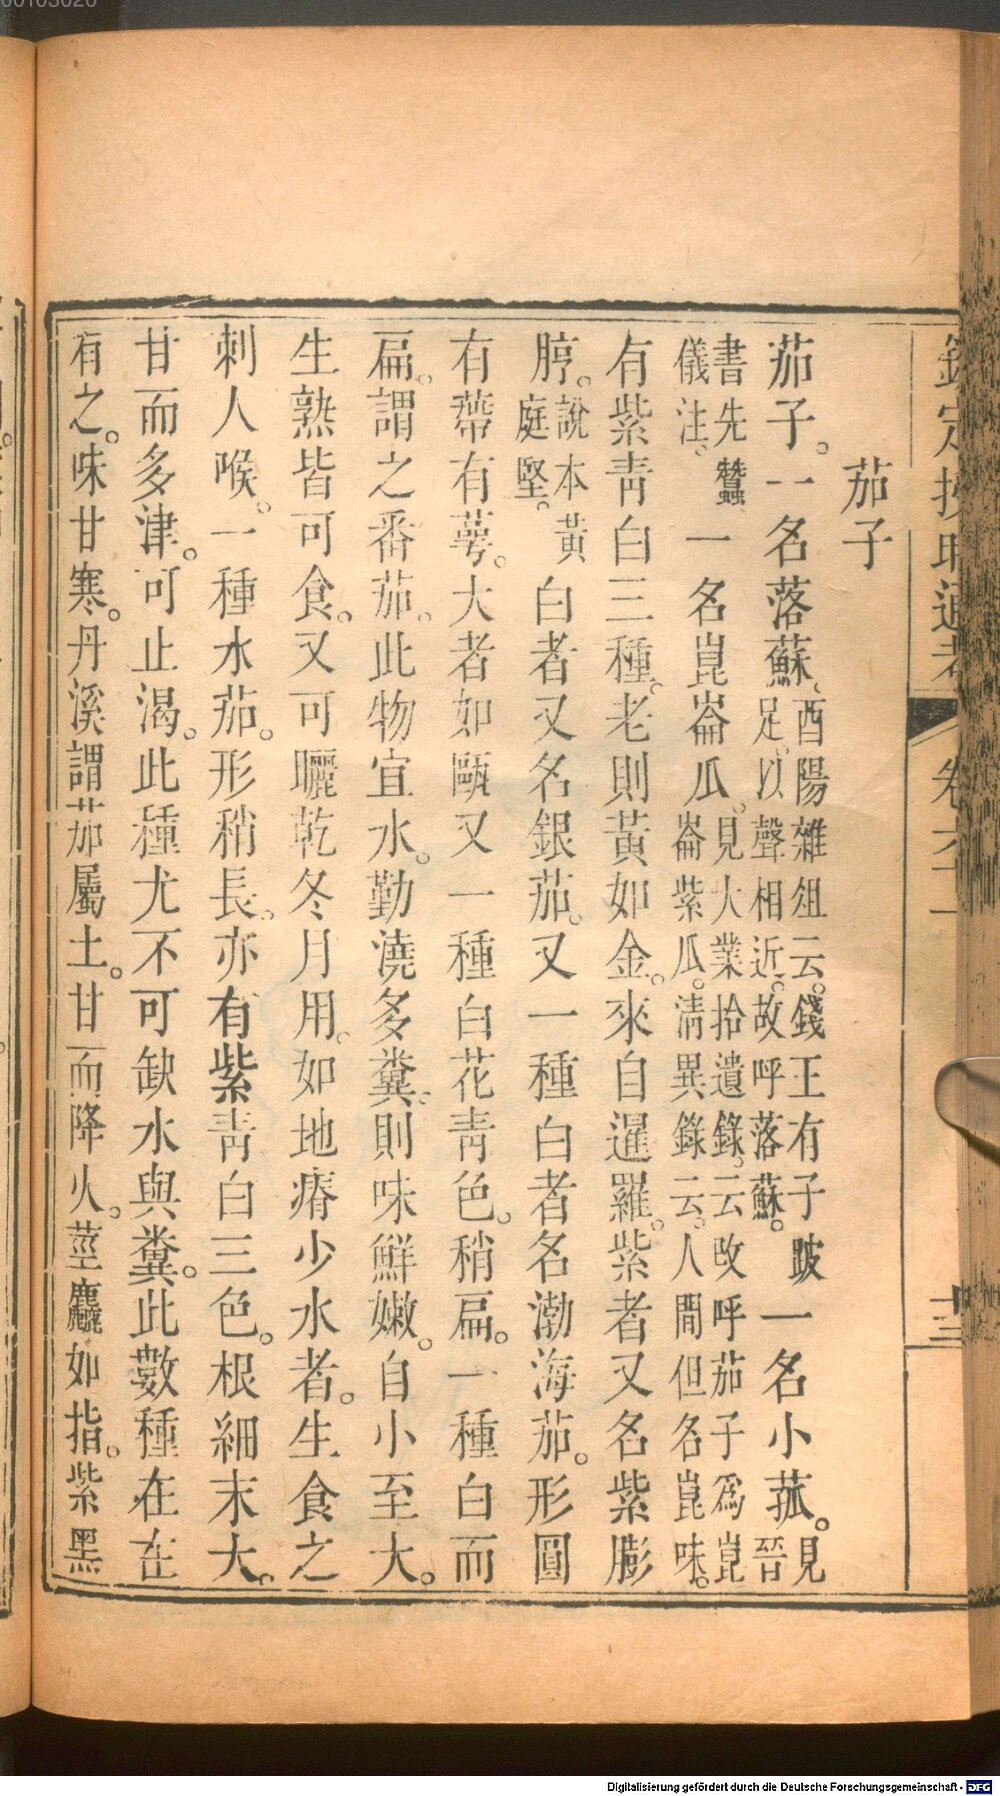 欽定授時通考 卷六十一 十三
茄子
茄子。一名落蘇。酉陽雜俎云。錢王有子跛足。以聲相近。故呼落蘇。一名小菰。見晉
書先蠶儀注。一名崑崙瓜。見大業拾遺錄。云改呼茄子爲崑崙紫瓜。淸異錄云。人間但名崑味。
有紫靑白三種。老則黃如金。來自暹羅。紫者又名紫膨
脝。說本黃庭堅。白者又名銀茄。又一種白者名渤海茄。形圓
有蔕有蕚。大者如甌又一種白花靑色。稍扁。一種白而
扁。謂之番茄。此物宜水。勤澆多糞。則味鮮嫩。自小至大。
生熟皆可食。又可曬乾冬月用。如地瘠少水者。生食之
刺人喉。一種水茄。形稍長。亦有紫靑白三色。根細末大。
甘而多津。可止渴。此種尤不可缺水與糞。此數種在在
有之。味甘寒。丹溪謂茄屬土。甘而降火。莖麤如指。紫黑
Digitalisierung gefördert durch die Deutsche Forschungsgemeinschaft - DFG